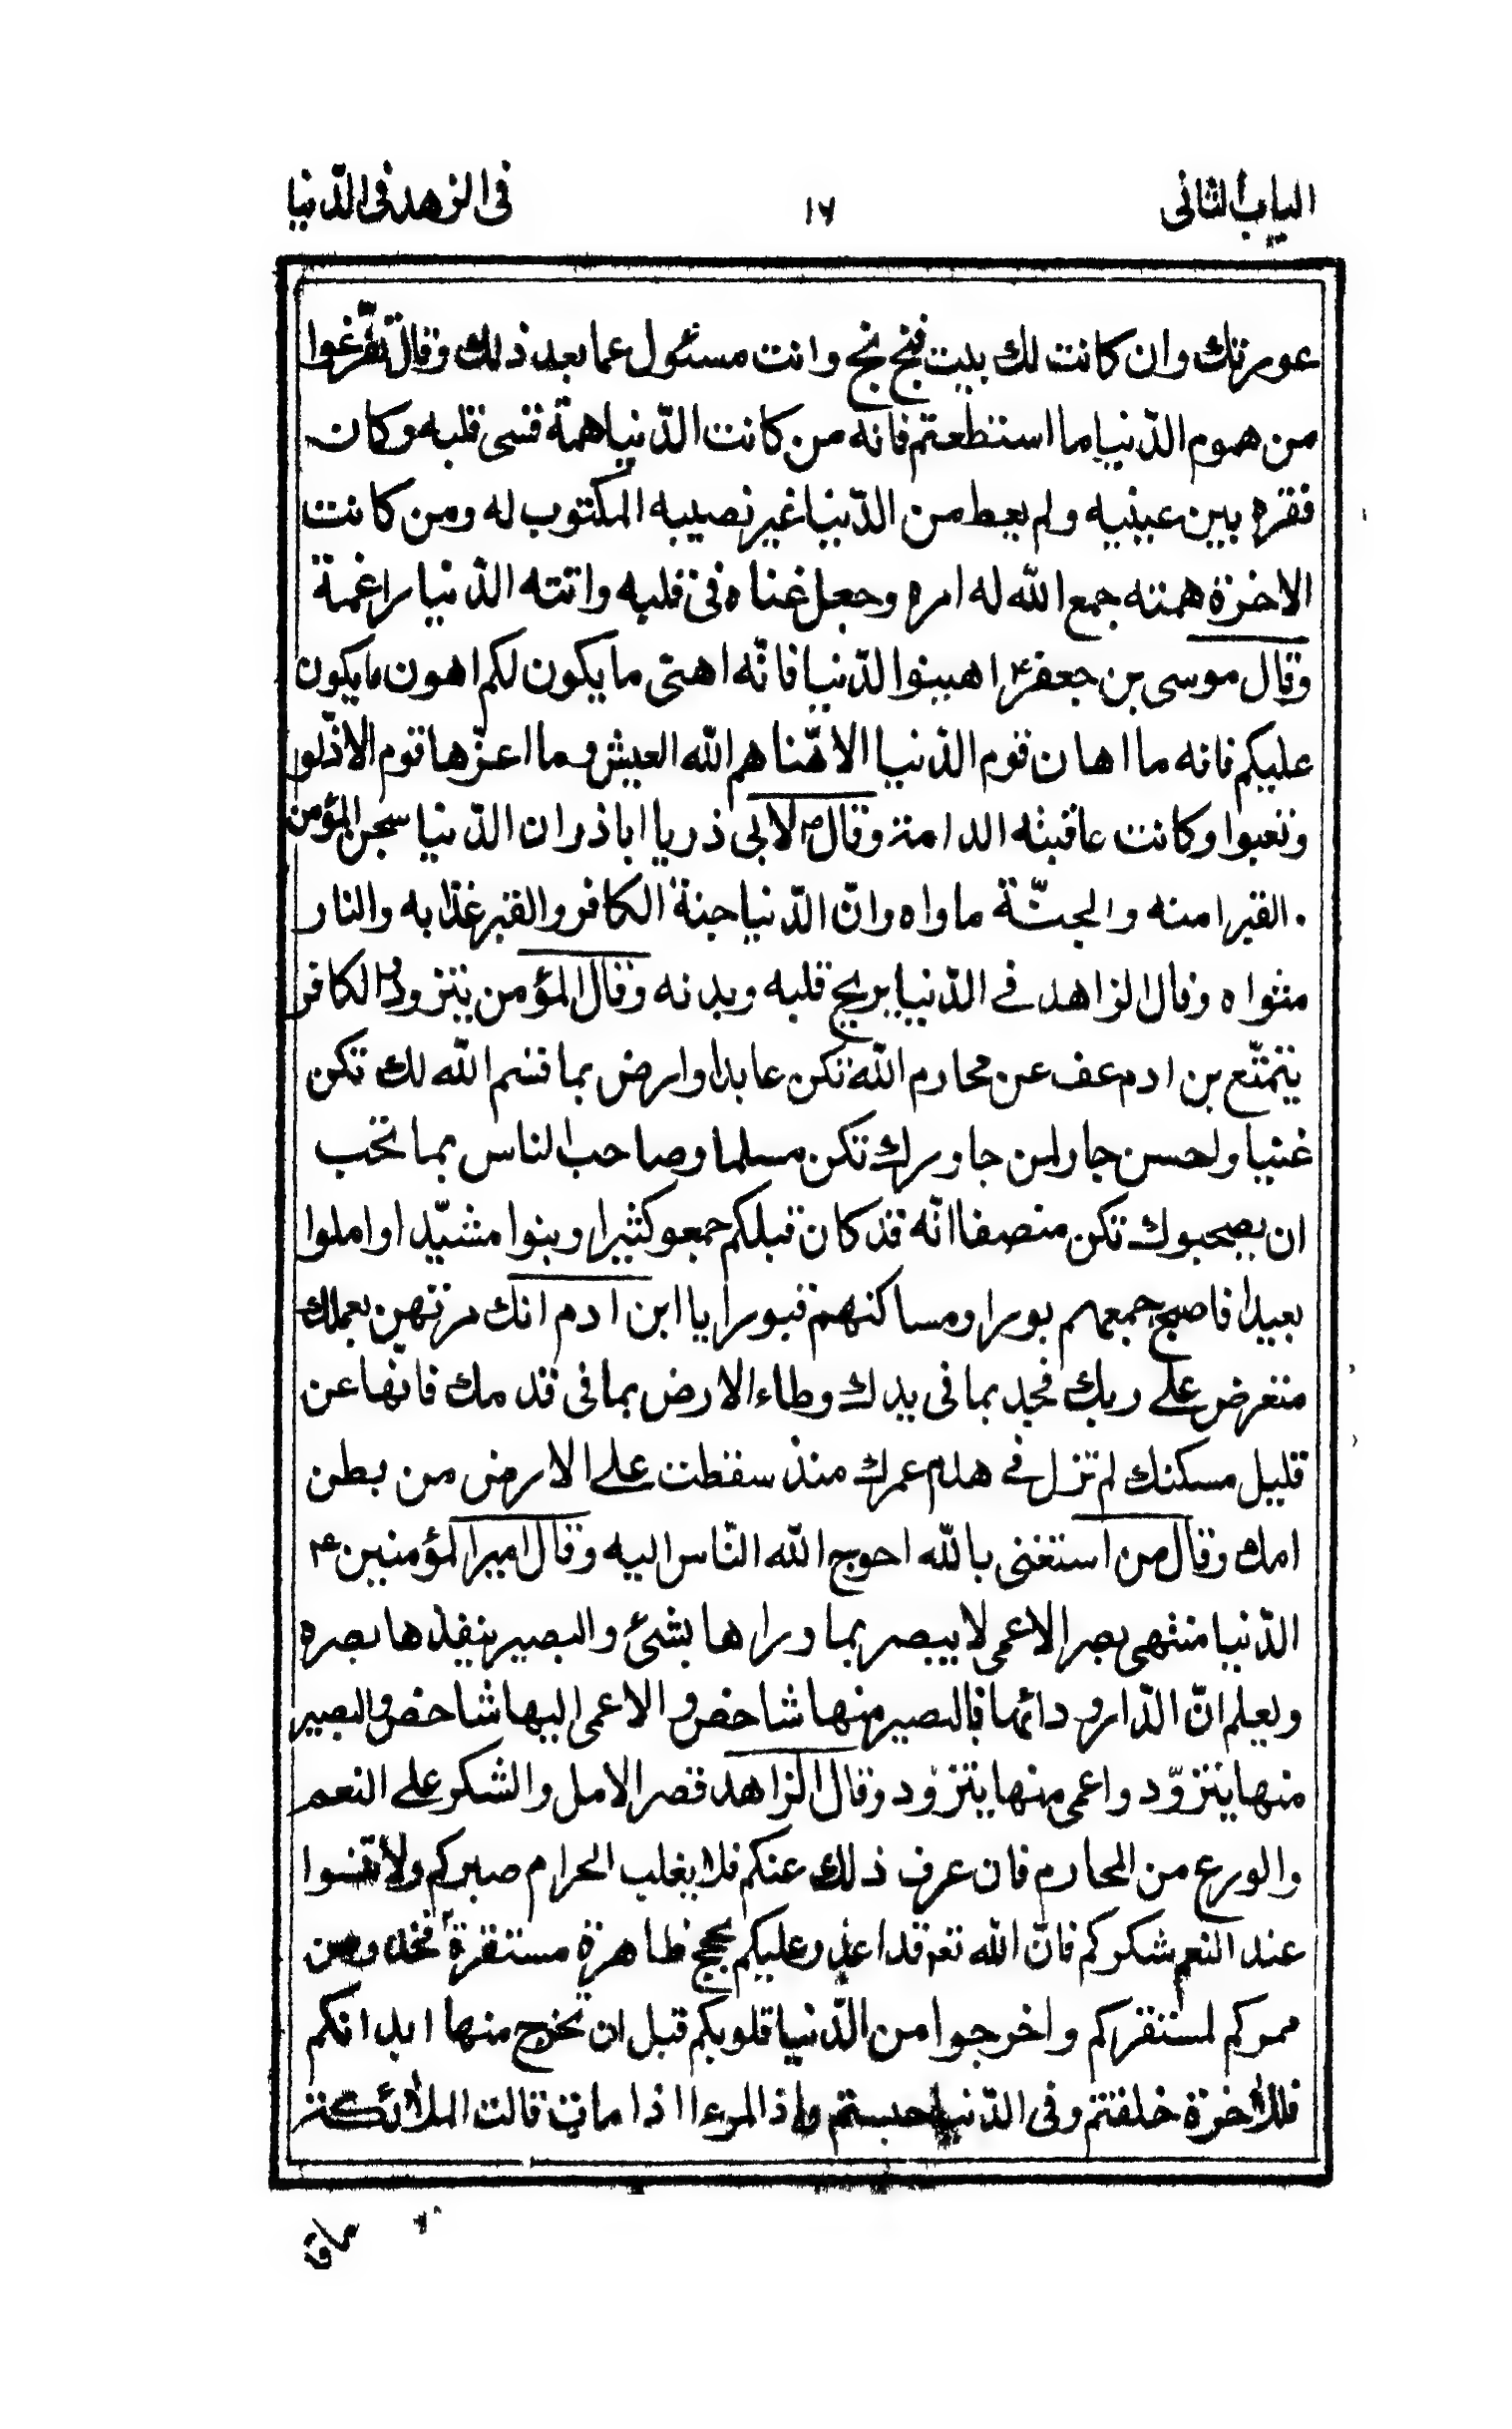 الباب الثانی ١٧ فی الزهد فی الدّنیا
عورتك وان كانت لك بیت فبخ بخ وانت مسئول عما بعد ذلك وقال تفرّغوا
من هموم الدّنیا ما استطعتم فانه من كانت الدّنیا همة قسی قلبه وكان
فقره بین عینیه ولم یعط من الدّنیا غیر نصیبه المكتوب له ومن كانت
الاخرة همته جمع الله له امره وجعل غناه فی قلبه واتته الدّنیا راغمة
وقال موسی بن جعفر ع اهینوا الدّنیا فانّه اهنی ما یكون لكم اهون ما یكون
علیكم فانه ما اهان قوم الدّنیا الا هنّاهم الله العیش وما اعزّها قوم الا ذلّو
وتعبوا وكانت عاقبته الدامة وقال ص لابی ذر یا اباذر ان الدّنیا سجن المؤمن
القبر امنه والجنّة ماواه وانّ الدّنیا جنة الكافر والقبر عذابه والنار
مثواه وقال الزاهد فے الدّنیا یریح قلبه وبدنه وقال المؤمن یتزود و الكافر
یتمتّع بن ادم عف عن محارم الله تكن عابدا وارض بما قسم الله لك تكن
غنیا ولحسن جار لمن جاورك تكن مسلما وصاحب الناس بما تحب
ان یصحبوك تكن منصفا انّه قد كان قبلكم جمعو كثیرا وبنوا مشیّدا واملوا
بعیدا فاصبح جمعهم بورا ومساكنهم قبورا یا ابن ادم انك مرتهن بعملك
متعرض علے ربك فجد بما فی یدك وطاء الارض بما فی قدمك فانها عن
قلیل مسكنك لم تزل فے هدم عمرك منذ سقطت علے الارض من بطن
امك وقال من استغنی بالله احوج الله النّاس الیه وقال امیر المؤمنین ع
الدّنیا منتهی بصر الاعمی لا یبصر بما وراها بشئ والبصیر ینفذها بصره
ویعلم انّ الدّار دائها فالبصیر منها شاخص و الاعمی الیها شاخص والبصیر
منها یتزوّد واعمی منها یتزود وقال الزاهد قصر الامل والشكر علے النعم
والورع من المحارم فان عرف ذلك عنكم فلا یغلب الحرام صبركم ولا تنسوا
عند النعم شكركم فانّ الله تعم قد اعذر علیكم بحجج ظاهرة مستقرة فخذوا من
ممركم لمستقركم واخرجوا من الدّنیا قلوبكم قبل ان یخرج منها ابدانكم
فللاخرة خلقتم وفی الدّنیا حبستم واذ المرء اذا مات قالت الملائكة
ماق